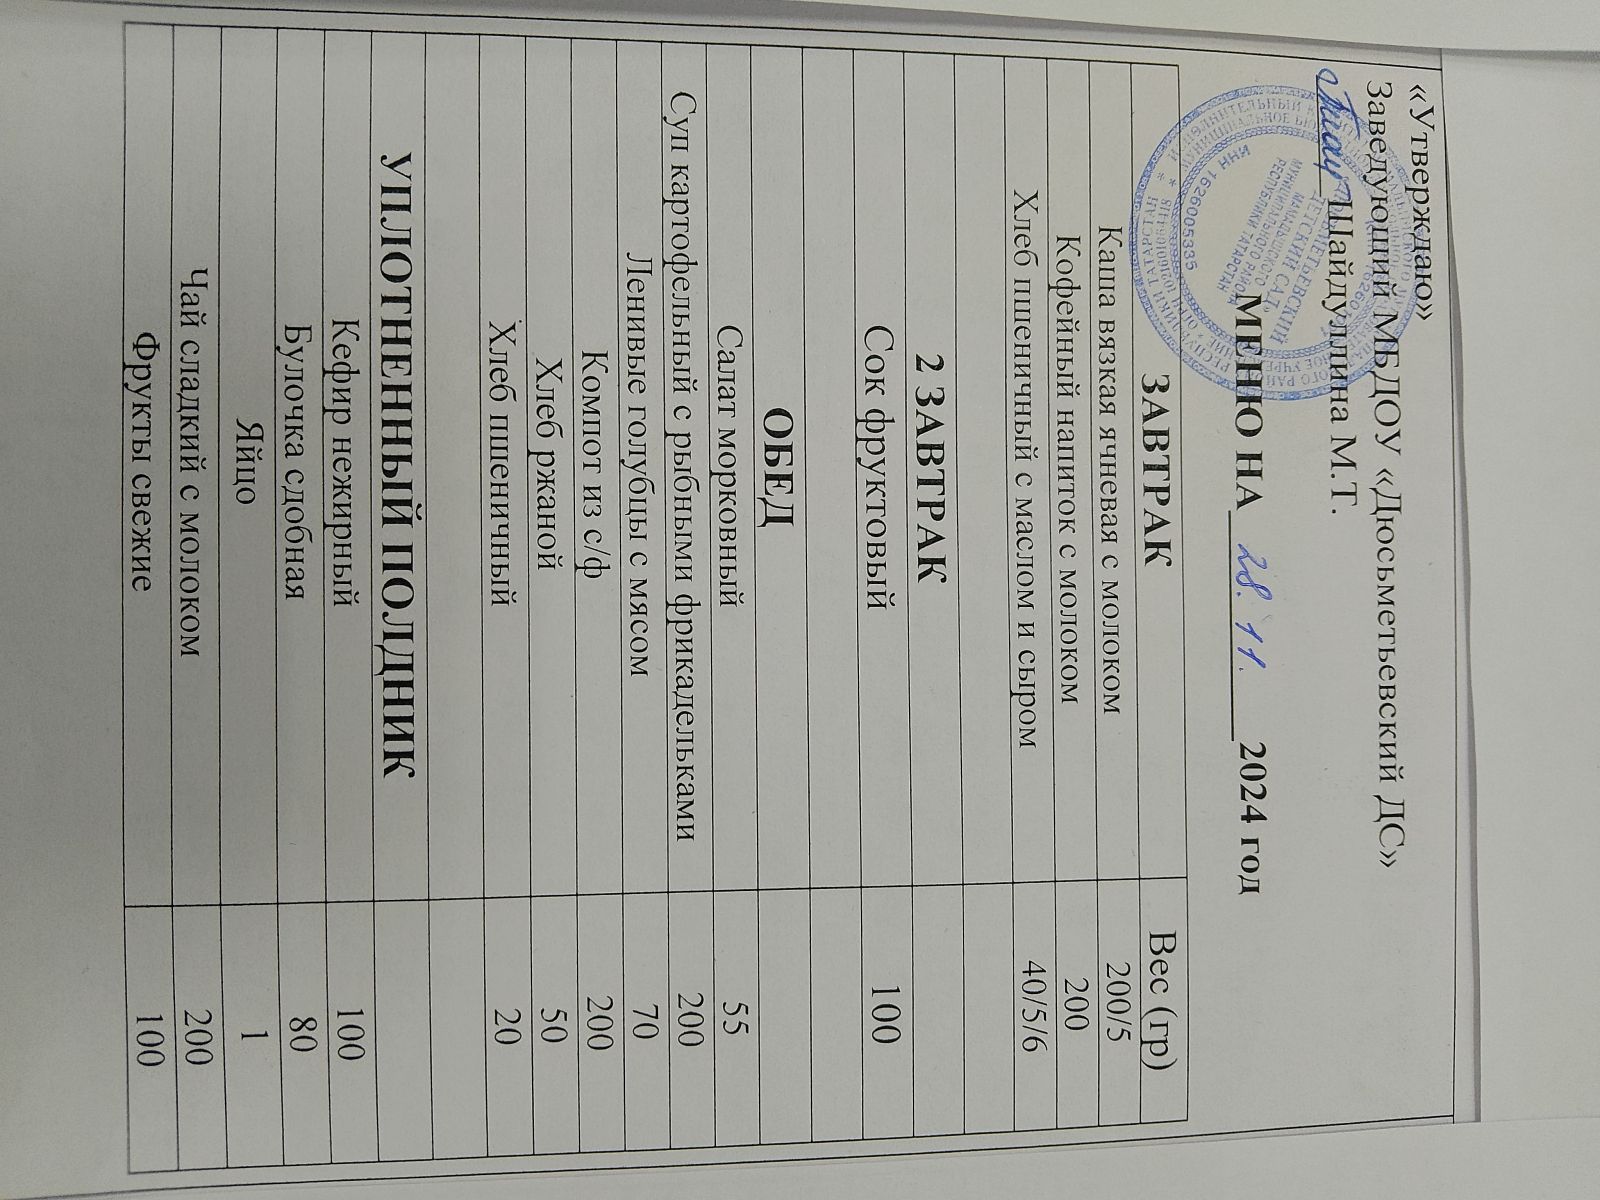 «Утверждаю»
Заведующий МБДОУ «Дюсьметьевский ДС»
Шайдуллина М.Т.
МЕНЮ НА 28.11. 2024 год
ЗАВТРАК Вес (гр)
Каша вязкая ячневая с молоком 200/5
Кофейный напиток с молоком 200
Хлеб пшеничный с маслом и сыром 40/5/6
2 ЗАВТРАК
Сок фруктовый 100
ОБЕД
Салат морковный 55
Суп картофельный с рыбными фрикадельками 200
Ленивые голубцы с мясом 70
Компот из с/ф 200
Хлеб ржаной 50
Хлеб пшеничный 20
УПЛОТНЕННЫЙ ПОЛДНИК
Кефир нежирный 100
Булочка сдобная 80
Яйцо 1
Чай сладкий с молоком 200
Фрукты свежие 100
ИНН 1626005335
ДЕТСКИЙ САД»
МАМАДЫШСКОГО
МУНИЦИПАЛЬНОГО РАЙОНА
РЕСПУБЛИКИ ТАТАРСТАН